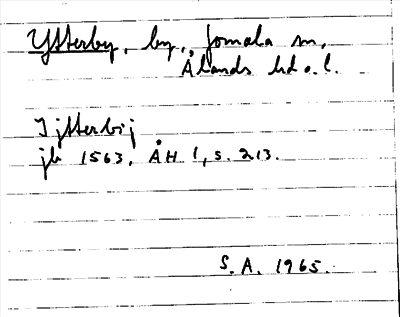 Ytterby, by, Jomala sn,
Ålands hd o. l.
I jtterbij
jb 1563. ÅH 1, s. 213.
S. A. 1965.